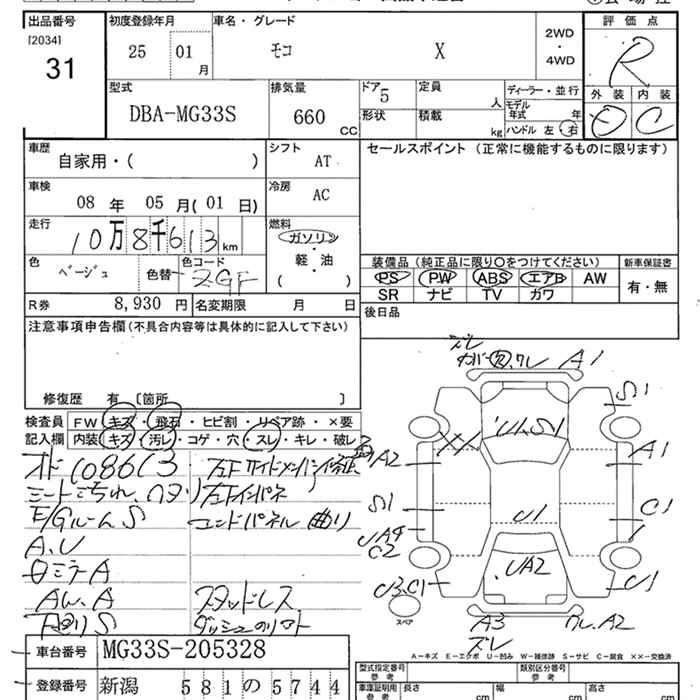 出品番号 初度登録年月 車名・グレード 評価点
[2034]
31 25 01月 モコ X 2WD・4WD R
外装 内装
D C
型式 排気量 ドア 定員 ディーラー・並行
DBA-MG33S 660 CC 5 人 モデル年式 年
形状 積載 kg ハンドル 左 右
車歴 シフト セールスポイント (正常に機能するものに限ります)
自家用・( ) AT
車検 冷房
08年 05月(01日) AC
走行 燃料
10万8千613km ガソリン・軽・油
色 色コード ( )
ベージュ 色替 ZGF
装備品 (純正品に限り○をつけてください) 新車保証書
PS PW ABS エアB AW 有・無
SR ナビ TV カワ
R券 8,930円 名変期限 月 日
後日品
注意事項申告欄(不具合内容等は具体的に記入して下さい)
修復歴 有 [箇所 ]
検査員記入欄 FW キズ・飛石・ヒビ割・リペア跡・×要
内装 キズ・汚レ・コゲ・穴・スレ・キレ・破レ
オド108613
シートこちれ、
E/Gルーム S
A、U
コンドパネル 曲り
AW、A スタッドレス
下廻りS
ズレ
カバー 欠、ワレ A1
S1
U1、S1
XX
A2 A1
S1 C1
U1
UA4
C2
UA2
U3、C1 U1
スペア
A3 ワレ、A2
ズレ
A−キズ E−エクボ U−凹み W−補修跡 S−サビ C−腐食 ××−交換済
車台番号 MG33S-205328
登録番号 新潟 581 の 5744
型式指定番号 参考 類別区分番号 参考
車庫証明用 参考 長さ cm 幅 cm 高さ cm